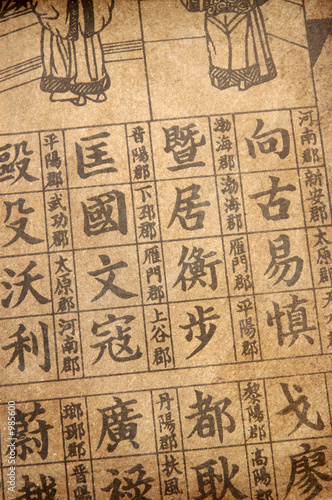 河南郡 新安郡
向古易慎
渤海郡 渤海郡 雁門郡 平陽郡
暨居衡步
晉陽郡 下邳郡 雁門郡 上谷郡
匡國文寇
平陽郡 武功郡 太原郡 河南郡
殳沃利
戈廖
黎陽郡 高陽
都耿
丹陽郡 扶風
廣祿
瑯琊郡 晉陽
蔚越
Adobe Stock | #985600